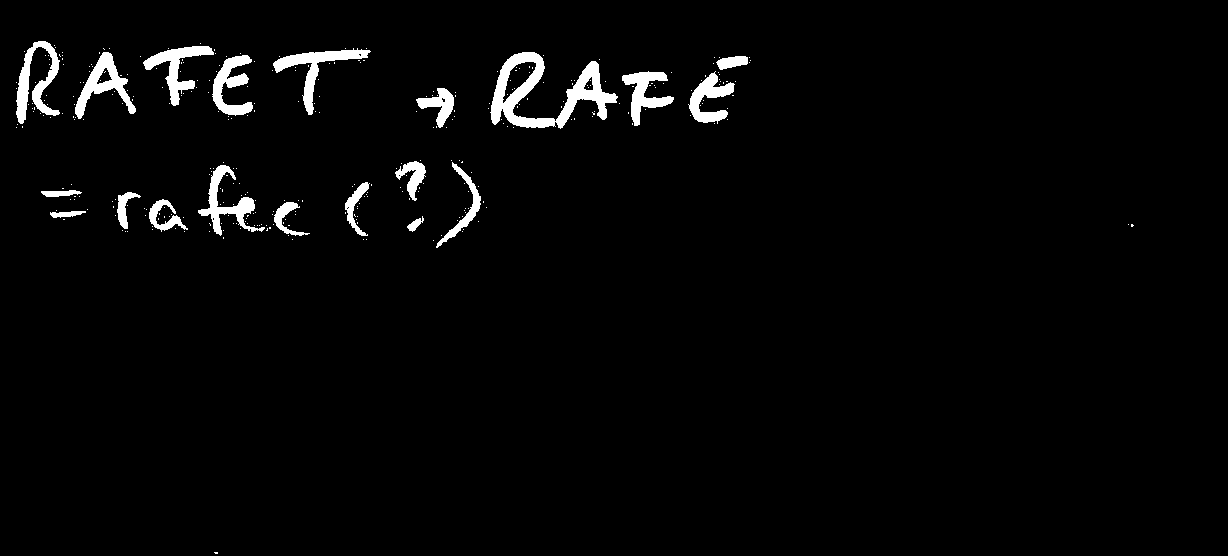 RAFET → RAFE
= rafec (?)